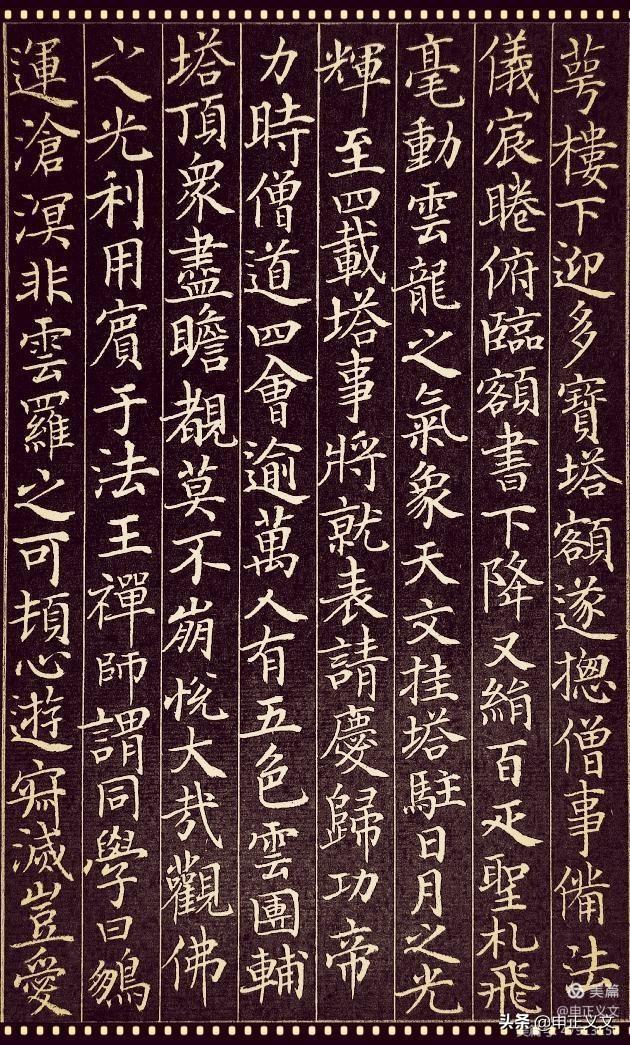 萼樓下迎多寶塔額遂揔僧事備法
儀宸睠俯臨額書下降又絹百疋聖札飛
毫動雲龍之氣象天文挂塔駐日月之光
輝至四載塔事將就表請慶歸功帝
力時僧道四會逾萬人有五色雲團輔
塔頂衆盡瞻覩莫不崩悅大哉觀佛
之光利用賓于法王禪師謂同學曰鵬
運滄溟非雲羅之可頓心遊寂滅豈愛
美篇
@申正义文
头条 @申正义文